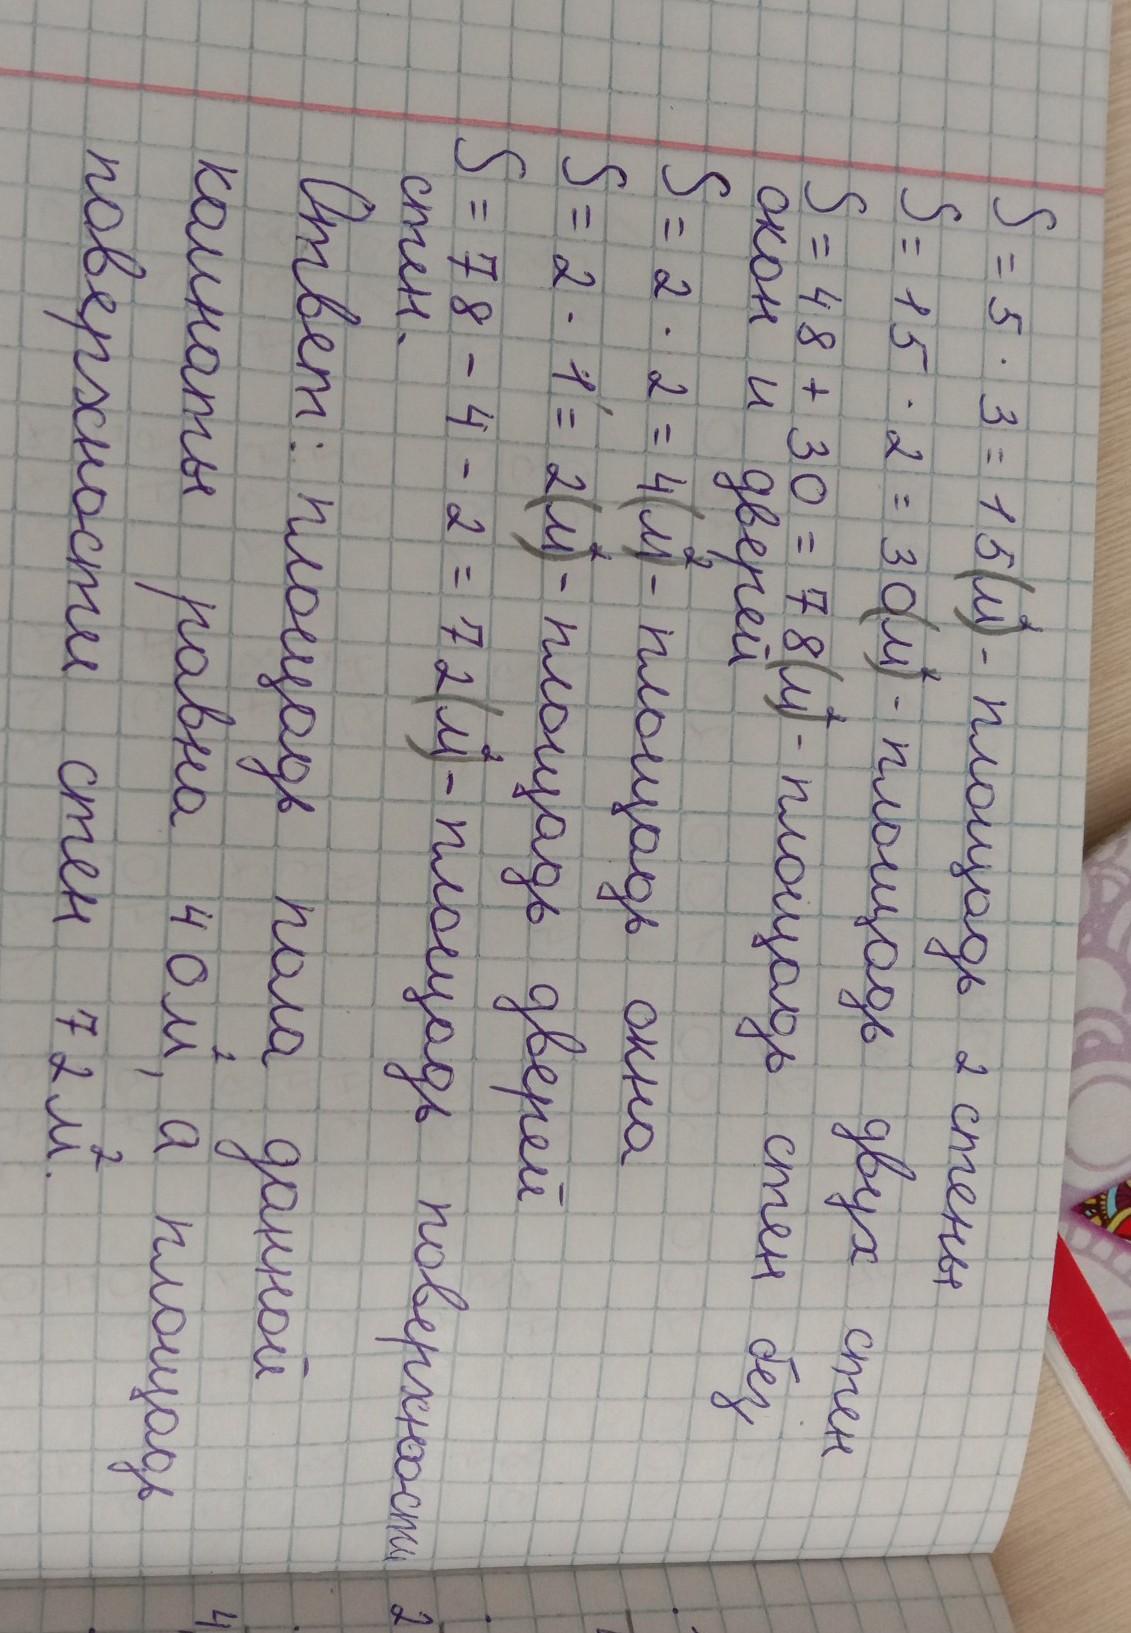 S = 5 · 3 = 15 (м²) - площадь 2 стены
S = 15 · 2 = 30 (м²) - площадь двух стен
S = 48 + 30 = 78 (м²) - площадь стен без
окон и дверей
S = 2 · 2 = 4 (м²) - площадь окна
S = 2 · 1 = 2 (м²) - площадь дверей
S = 78 - 4 - 2 = 72 (м²) - площадь поверхности
стен.
Ответ: площадь пола данной
комнаты равна 40м², а площадь
поверхности стен 72м².
2
4